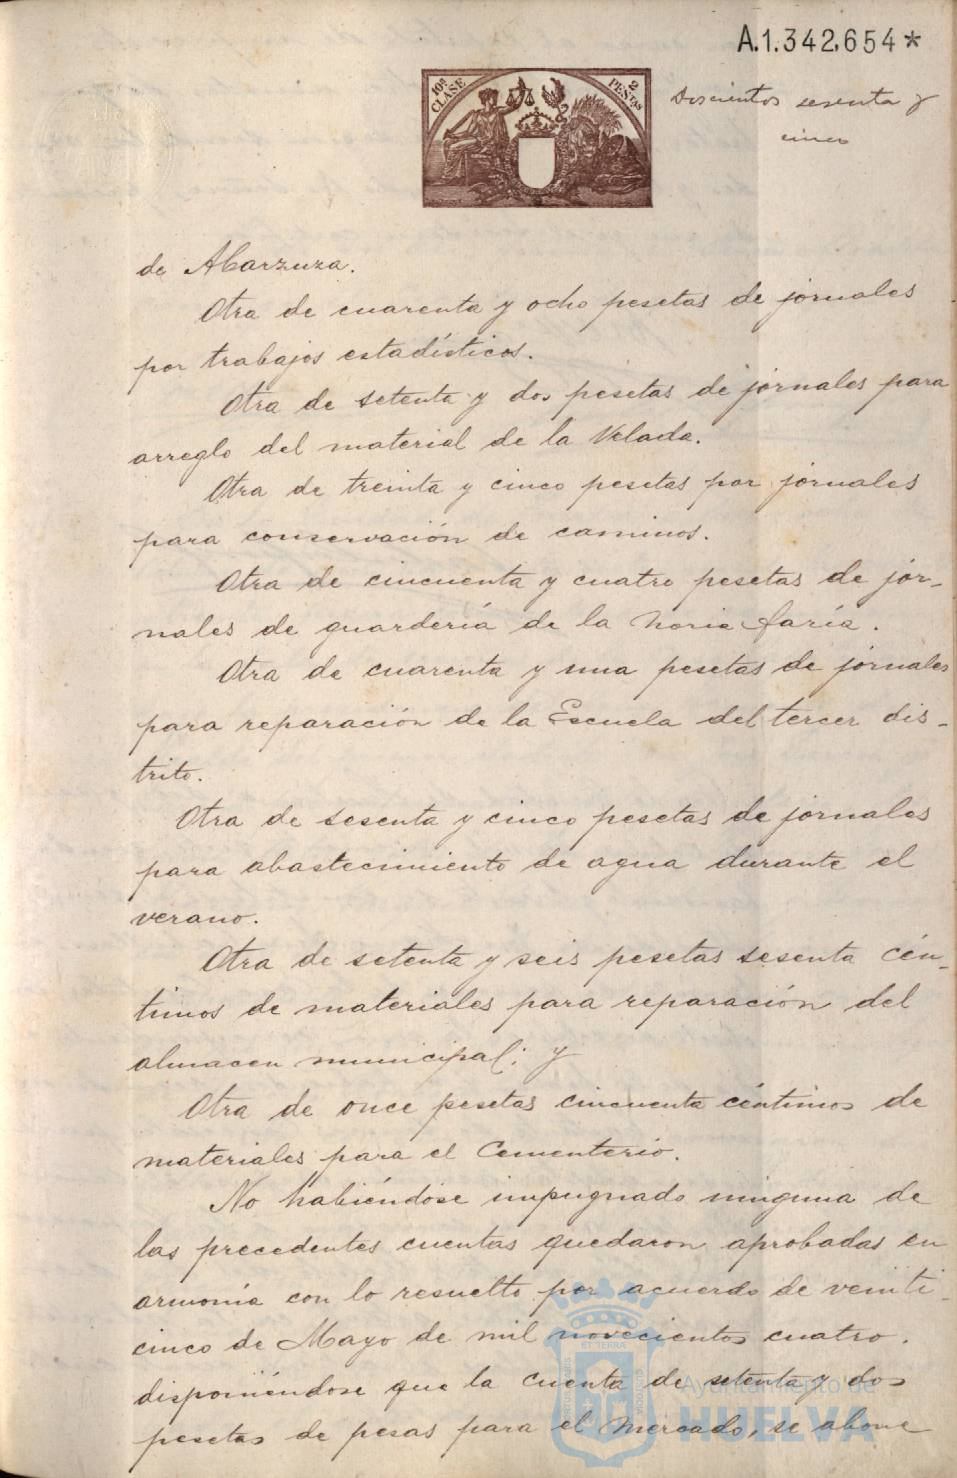 A.1.342.654*
10ª CLASE
2 PESTAS
Doscientos sesenta y
cinco
de Abarzuza.
Otra de cuarenta y ocho pesetas de jornales
por trabajos estadísticos.
Otra de setenta y dos pesetas de jornales para
arreglo del material de la Velada.
Otra de treinta y cinco pesetas por jornales
para conservación de caminos.
Otra de cincuenta y cuatro pesetas de jor-
nales de guardería de la Noria
Otra de cuarenta y una pesetas de jornales
para reparación de la Escuela del tercer dis-
trito.
Otra de sesenta y cinco pesetas de jornales
para abastecimiento de agua durante el
verano.
Otra de setenta y seis pesetas sesenta cén-
timos de materiales para reparación del
almacen municipal; y
Otra de once pesetas cincuenta céntimos de
materiales para el Cementerio.
No habiéndose impugnado ninguna de
las precedentes cuentas quedaron aprobadas en
armonía con lo resuelto por acuerdo de veinti-
cinco de Mayo de mil novecientos cuatro.
disponiéndose que la cuenta de setenta y dos
pesetas de pesas para el Mercado, se abone
Ayuntamiento de
HUELVA